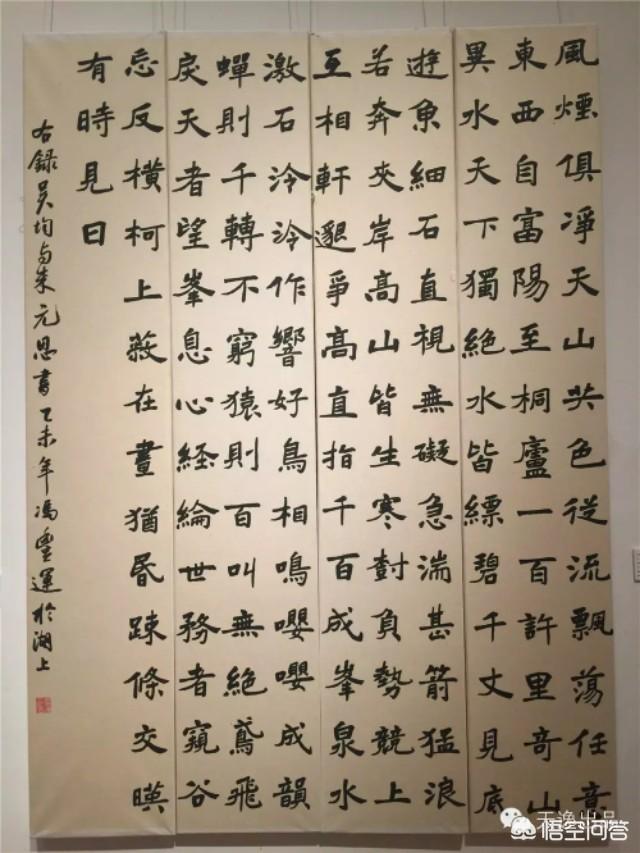 風煙俱凈天山共色從流飄蕩任意
東西自富陽至桐廬一百許里奇山
異水天下獨絕水皆縹碧千丈見底
遊魚細石直視無礙急湍甚箭猛浪
若奔夾岸高山皆生寒樹負勢競上
互相軒邈爭高直指千百成峯泉水
激石泠泠作響好鳥相鳴嚶嚶成韻
蟬則千轉不窮猿則百叫無絕鳶飛
戾天者望峯息心経綸世務者窺谷
忘反橫柯上蔽在晝猶昏踈條交暎
有時見日
右錄吳均与朱元思書乙未年馮豐運於湖上
天逸出品
悟空问答